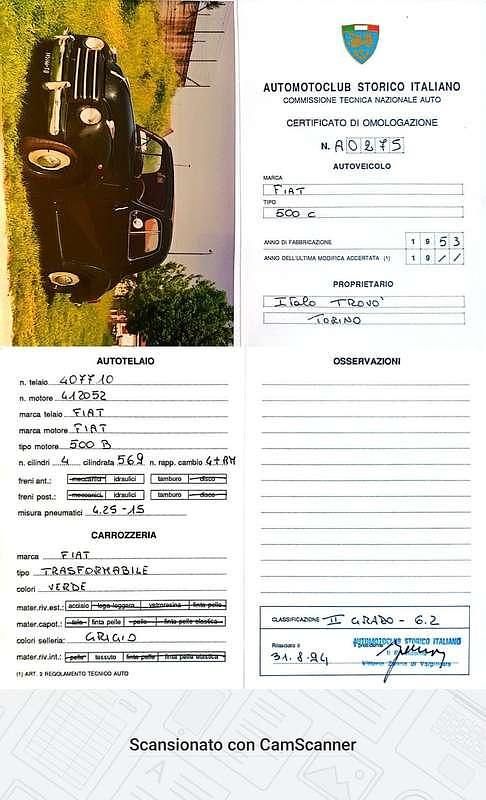 AUTOMOTOCLUB STORICO ITALIANO
COMMISSIONE TECNICA NAZIONALE AUTO
CERTIFICATO DI OMOLOGAZIONE
N. A0275
AUTOVEICOLO
MARCA
FIAT
TIPO
500 C
ANNO DI FABBRICAZIONE 1953
ANNO DELL'ULTIMA MODIFICA ACCERTATA (1) 19//
PROPRIETARIO
Italo TROVO'
TORINO
AUTOTELAIO
n. telaio 407710
n. motore 412052
marca telaio FIAT
marca motore FIAT
tipo motore 500 B
n. cilindri 4 cilindrata 569 n. rapp. cambio 4+RM
freni ant.: meccanici idraulici tamburo disco
freni post.: meccanici idraulici tamburo disco
misura pneumatici 4.25-15
CARROZZERIA
marca FIAT
tipo TRASFORMABILE
colori VERDE
mater.riv.est.: acciaio lega leggera vetroresina finta pelle
mater.capot.: tela finta pelle pelle finta pelle elastica
colori selleria: GRIGIO
mater.riv.int.: pelle tessuto finta pelle finta pelle elastica
(1) ART. 2 REGOLAMENTO TECNICO AUTO
OSSERVAZIONI
CLASSIFICAZIONE II GRADO - 6.2
Rilasciato il
31.8.94
Il presidente
AUTOMOTOCLUB STORICO ITALIANO
Scansionato con CamScanner